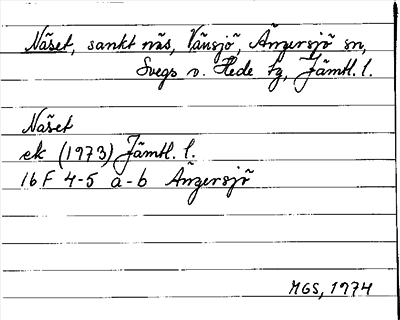 Näset, sankt näs, Vänsjö, Ängersjö sn,
Svegs o. Hede tg, Jämtl. l.
Näset
ek (1973) Jämtl. l.
16 F 4-5 a-b Ängersjö
MGS, 1974